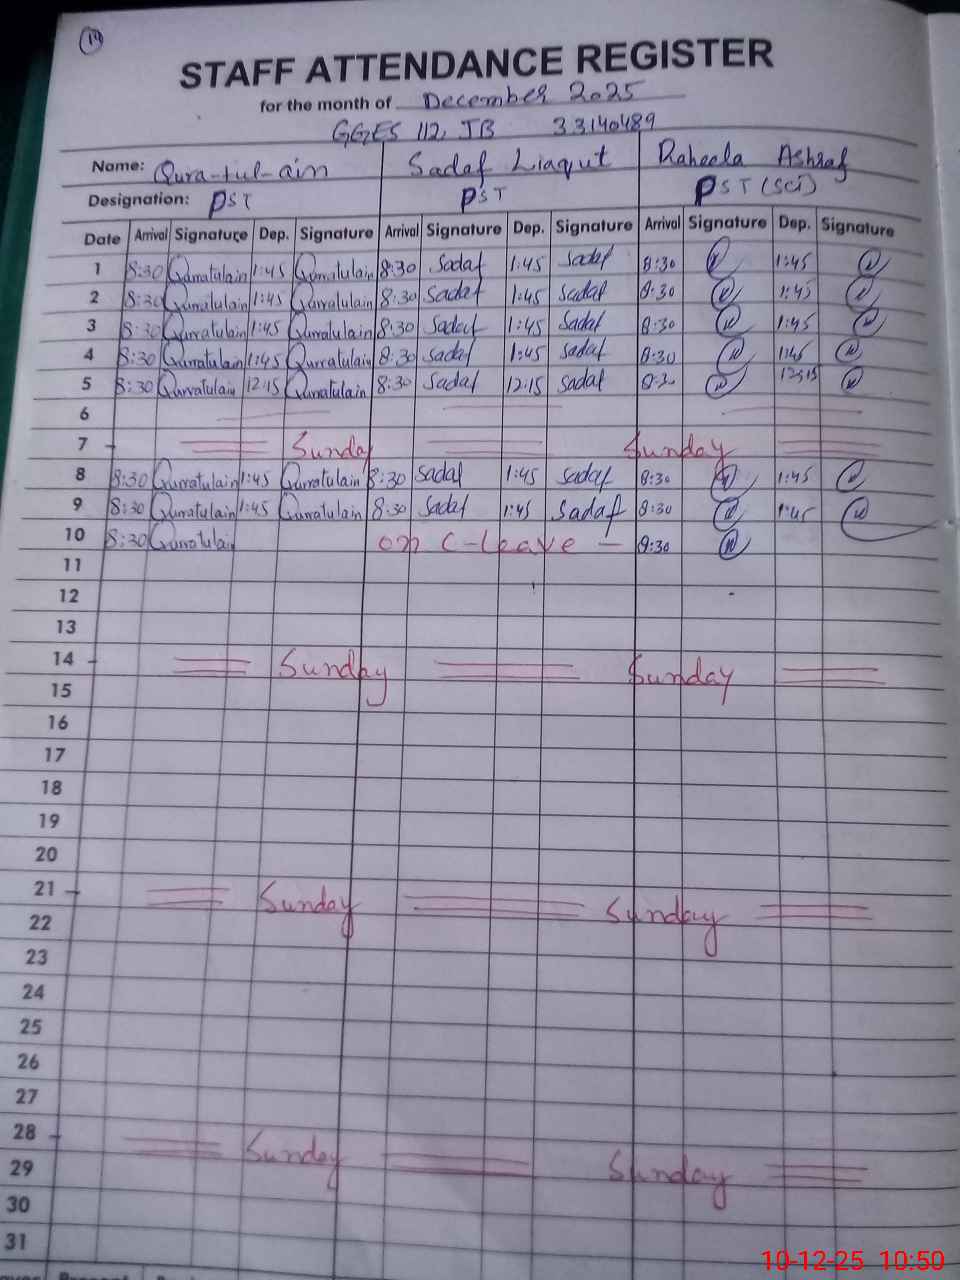 19
STAFF ATTENDANCE REGISTER
for the month of December 2025
GGES 112, JB 33140489
Name: Qura-tul-ain Sadaf Liaqut Raheela Ashraf
Designation: PST PST PST (Sci)
Date Arrival Signature Dep. Signature Arrival Signature Dep. Signature Arrival Signature Dep. Signature
1 8:30 Qurratulain 1:45 Qurratulain 8:30 Sadaf 1:45 Sadaf 8:30 1:45
2 8:30 Qurratulain 1:45 Qurratulain 8:30 Sadaf 1:45 Sadaf 8:30 1:45
3 8:30 Qurratulain 1:45 Qurratulain 8:30 Sadaf 1:45 Sadaf 8:30 1:45
4 8:30 Qurratulain 1:45 Qurratulain 8:30 Sadaf 1:45 Sadaf 8:30 1:45
5 8:30 Qurratulain 12:15 Qurratulain 8:30 Sadaf 12:15 Sadaf 8:30 12:15
6
7 Sunday Sunday
8 8:30 Qurratulain 1:45 Qurratulain 8:30 Sadaf 1:45 Sadaf 8:30 1:45
9 8:30 Qurratulain 1:45 Qurratulain 8:30 Sadaf 1:45 Sadaf 8:30 1:45
10 8:30 Qurratulain on C-leave 8:30
11
12
13
14 Sunday Sunday
15
16
17
18
19
20
21 Sunday Sunday
22
23
24
25
26
27
28 Sunday Sunday
29
30
31
10-12-25 10:50